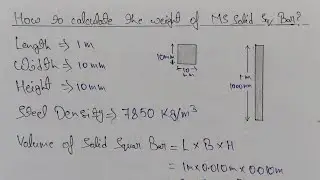 How to calculate the weight of MS Solid Sq. Bar?
Length => 1m
Width => 10mm
Height => 10mm
Steel Density => 7850 Kg/m³
Volume of Solid Squar Bar = L × B × H
= 1m × 0.010m × 0.010m
10mm
10
mm
1m
1000mm